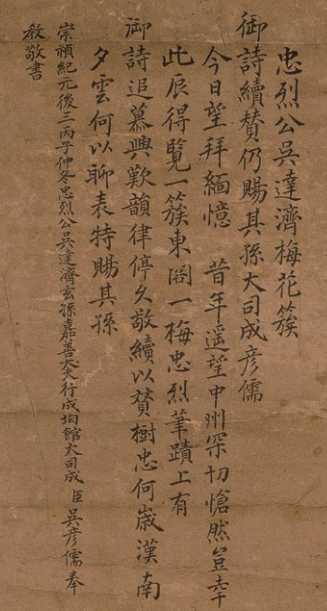 忠烈公吳達濟梅花簇
御詩續贊仍賜其孫大司成彦儒
今日望拜緬憶 昔年遥望中州深切愴然豈幸
此辰得覽一簇東閣一梅忠烈筆蹟上有
御詩追慕興歎韻律停久敬續以贊樹忠何歲漢南
夕雲何以聊表特賜其孫
崇禎紀元後三丙子仲冬忠烈公吳達濟玄孫嘉善大夫行成均館大司成 臣 吳彦儒奉
敎敬書